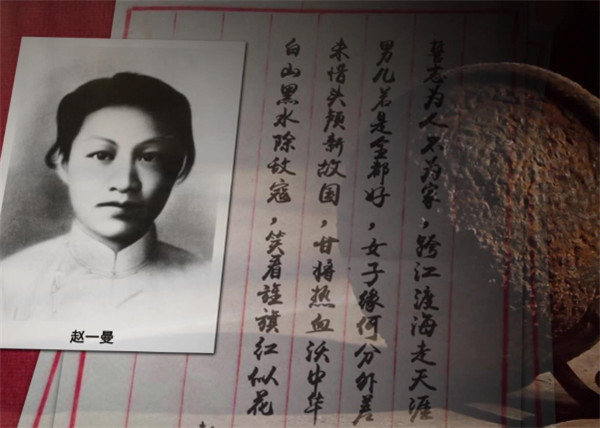 誓志为人不为家，跨江渡海走天涯
男儿若是全都好，女子缘何分外差
未惜头颅新故国，甘将热血沃中华
白山黑水除敌寇，笑看旌旗红似花
赵一曼